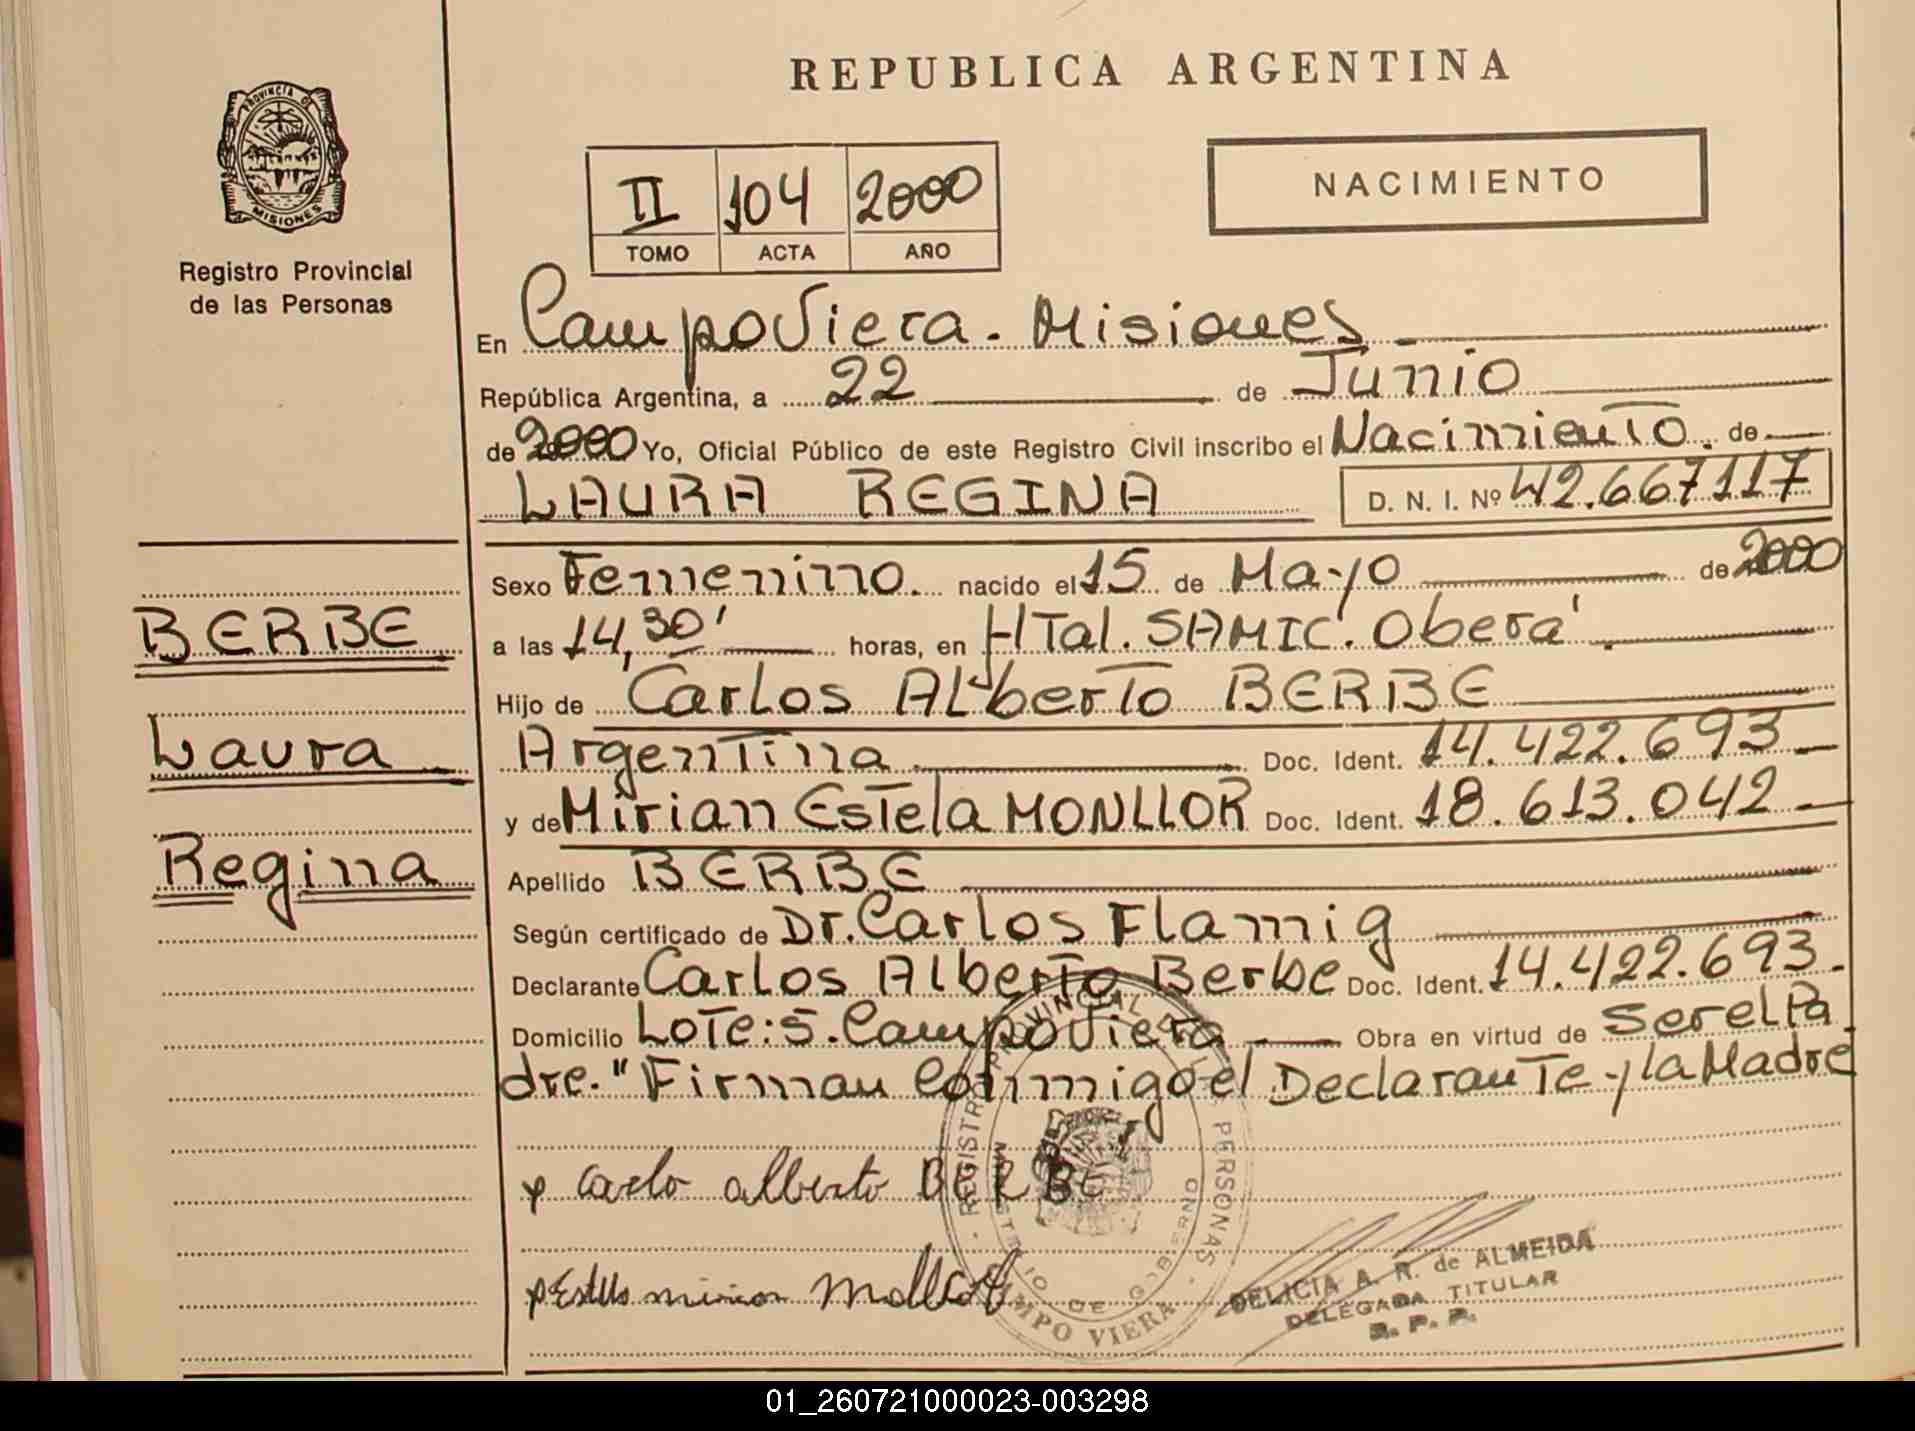 REPUBLICA ARGENTINA
PROVINCIA DE
MISIONES
Registro Provincial
de las Personas
II 104 2000
TOMO ACTA AÑO
NACIMIENTO
En Campo Viera. Misiones
República Argentina, a 22 de Junio
de 2000 Yo, Oficial Público de este Registro Civil inscribo el Nacimiento. de
LAURA REGINA
D. N. I. Nº 42.667117
BERBE
Laura
Regina
Sexo Femenino. nacido el 15 de Mayo de 2000
a las 14,30' horas, en HTal. SAMIC. Oberá.
Hijo de Carlos Alberto BERBE
Argentina Doc. Ident. 14.422.693
y de Mirian Estela MONLLOR Doc. Ident. 18.613.042
Apellido BERBE
Según certificado de Dr. Carlos Flamig
Declarante Carlos Alberto Berbe Doc. Ident. 14.422.693.
Domicilio Lote: 5. Campo Viera Obra en virtud de Ser el Pa
dre." Firman Conmigo el Declarante y la Madre
carlo alberto BERBE
REGISTRO PROVINCIAL DE LAS PERSONAS
MINISTERIO DE GOBIERNO
CAMPO VIERA
DELICIA A. R. de ALMEIDA
DELEGADA TITULAR
R. P. P.
01_260721000023-003298